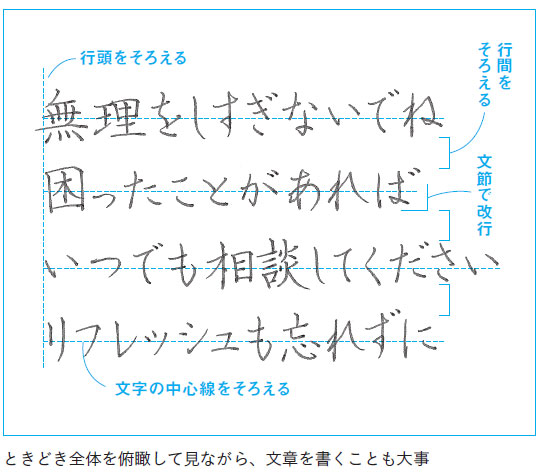 行頭をそろえる
行間を
そろえる
無理をしすぎないでね
困ったことがあれば
文節で改行
いつでも相談してください
リフレッシュも忘れずに
文字の中心線をそろえる
ときどき全体を俯瞰して見ながら、文章を書くことも大事